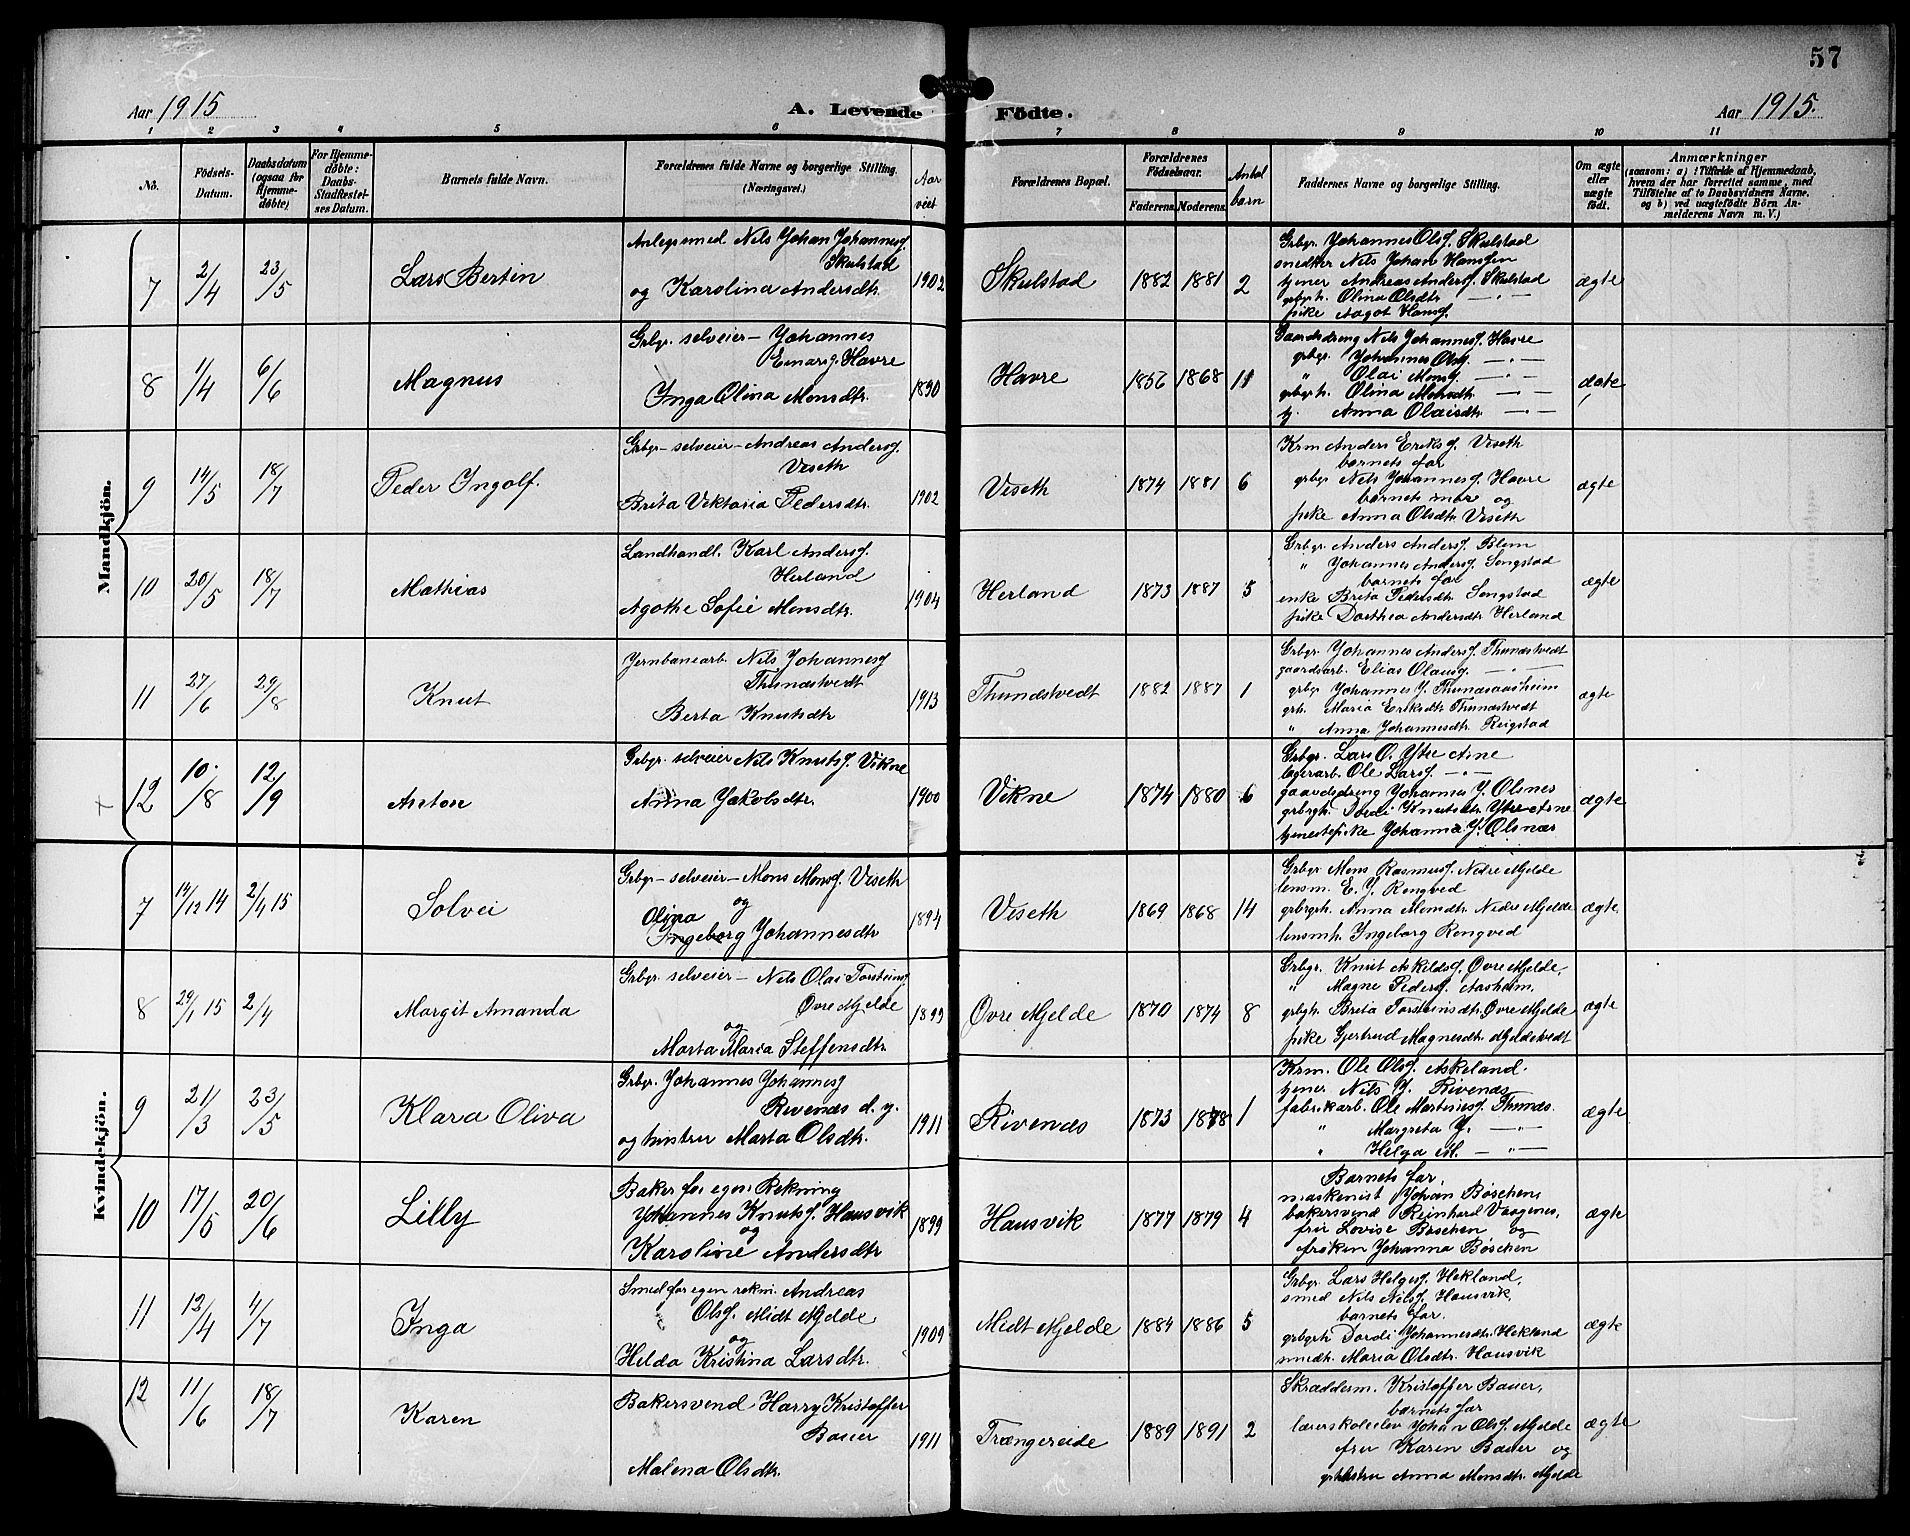 57
Aar 1915 A. Levende Födte. Aar 1915.
1 2 3 4 5 6 7 8 9 10 11
No.
Födsels-Datum.
Daabsdatum (ogsaa for Hjemmedöbte)
For Hjemmedöbte: Daabs-Stadfæstelses Datum.
Barnets fulde Navn.
Forældrenes fulde Navne og borgerlige Stilling. (Næringsvei.)
Aar viet
Forældrenes Bopæl.
Forældrenes Födselsaar.
Faderens.
Moderens.
Antal barn
Faddernes Navne og borgerlige Stilling.
Om ægte eller uægte födt.
Anmærkninger
(saasom: a) i Tilfælde af Hjemmedaab, hvem der har forrettet samme, med Tilföielse af to Daabsvidners Navne, og b) ved uægtefödte Börn Anmelderens Navn m. V.)
Mandkjön.
7 2/4 23/5 Lars Bertin
Anlegsmed Nils Johan Johannesf.
Skulstad
og Karolina Andersdtr.
1902 Skulstad 1882 1881 2
Grbgr. Johannes Olsf. Skulstad
snedker Nils Johan Hansen
tjener Andreas Andersf. Skulstad
grbgrh. Olina Olsdtr. — " —
pike Aagot Hansf.
ægte
8 1/4 6/6 Magnus
Grbgr. selveier – Johannes
Einarsf. Havre
Inga Olina Monsdtr.
1890 Havre 1868 11
Gaardsdreng Nils Johannesf. Havre
grbgr. Johannes Olsf. — " —
" Olai Monsf. — " —
grbgrh. Olina Monsdtr — " —
Anna Olaisdtr — " —
ægte
9 14/5 18/7 Peder Ingolf.
Grbgr – selveier – Andreas Andersf.
Veseth
Brita Viktoria Pedersdtr.
1902 Veseth 1874 1881 6
Krm Anders Eriksf. Veseth
barnets far
grbgr Nils Johannesf. Havre
barnets mor og
pike Anna Olsdtr. Veseth
ægte
10 20/5 18/7 Mathias
Landhandl. Karl Andersf.
Herland
Agothe Sofie Monsdtr.
1904 Herland 1873 1887 5
Grbgr. Anders Andersf. Blom
" Johannes Andersf. Songstad
barnets far
enke Brita Pedersdtr. Songstad
pike Dorthea Andersdtr Herland
ægte
11 27/6 29/8 Knut
Jernbanearb. Nils Johannesf
Thunestvedt
Berta Knutsdtr
1913 Thunestvedt 1882 1887 1
Grbgr. Johannes Andersf. Thunestvedt
gaardsarb. Elias Olausf. — " —
grbgr Johannes J. Thunesaasheim
grh. Maria Eriksdtr Thunestvedt
" Anna Johannesdtr. Reigstad
ægte
x 12 10/8 12/9 Anton
Grbgr. selveier Nils Knutsf. Vikne
Anna Jakobsdtr.
1900 Vikne 1874 1880 6
Grbgr. Lars O. Ytre Arne
lagerarb. Ole Larsf. — " —
gaardsdreng Johannes J. Olsnes
grbrgh. Dordi Knutsdtr. Ytre Arne
tjenestepike Johanna J. Olsnæs
ægte
Kvindekjön.
7 14/12 14 2/4 15 Solvei
Grbgr – selveier – Mons Monsf. Veseth
og
Olina
Ingeborg Johannesdtr
1894 Veseth 1869 1868 14
Grbgr Mons Rasmusf. Nedre Mjelde
lensm. E. J. Rongved
grbrgh. Anna Monsdtr. Nedre Mjelde
lensmh. Ingeborg Rongved
ægte
8 29/1 15 2/4 Margit Amanda
Grbgr. selveier – Nils Olai Torsteinsf
Øvre Mjelde
og
Marta Maria Steffensdtr.
1899 Øvre Mjelde 1870 1874 8
Grbgr. Knut Askildsf. Øvre Mjelde,
" Magne Pedersf. Aasheim.
grbgh. Brita Torsteinsdtr. Øvre Mjelde
pike Gjertrud Magnesdtr. Mjeldetvedt
ægte
9 21/3 23/5 Klara Oliva
Grbgr. Johannes Johannesf
Rivenæs d. y.
og hustru Marta Olsdtr.
1911 Rivenæs 1873 1878 1
Krm. Ole Olsf. Askeland.
tjener Nils J. Rivenæs
fabrikarb. Ole Martinesf. Thunæs.
" Margreta J. — " —
" Helga M. — " —
ægte
10 17/5 20/6 Lilly
Baker for egen Rekning
Johannes Knutsf. Hausvik
og
Karoline Andersdtr
1899 Hausvik 1877 1879 4
Barnets far,
maskenist Johan Böschen,
bakersvend Reinhard Vaagenes,
fru Lovise Böschen og
frøken Johanna Böschen
ægte
11 12/4 4/7 Inga
Smed for egen rekn. Andreas
Olsf. Midt Mjelde
og
Helda Kristina Larsdtr.
1909 Midt Mjelde 1884 1886 5
Grbgr. Lars Helgesf. Hekland,
smed Nils Nilsf. Hausvik,
barnets far.
grbgrh Dordi Johannesdtr. Hekland
smedh. Maria Olsdtr. Hausvik
ægte
12 11/6 18/7 Karen
Bakersvend Harry Kristoffer
Bauer
Malena Olsdtr.
1911 Trængereide 1889 1891 2
Skræddsrm. Kristoffer Bauer,
barnets far
lærerskoleelev Johan Olsf. Mjelde
fru Karen Bauer og
Anna Monsdtr. Mjelde
ægte